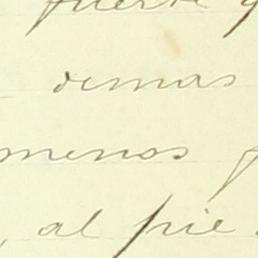 fuerte y
demas
menos
, al pie